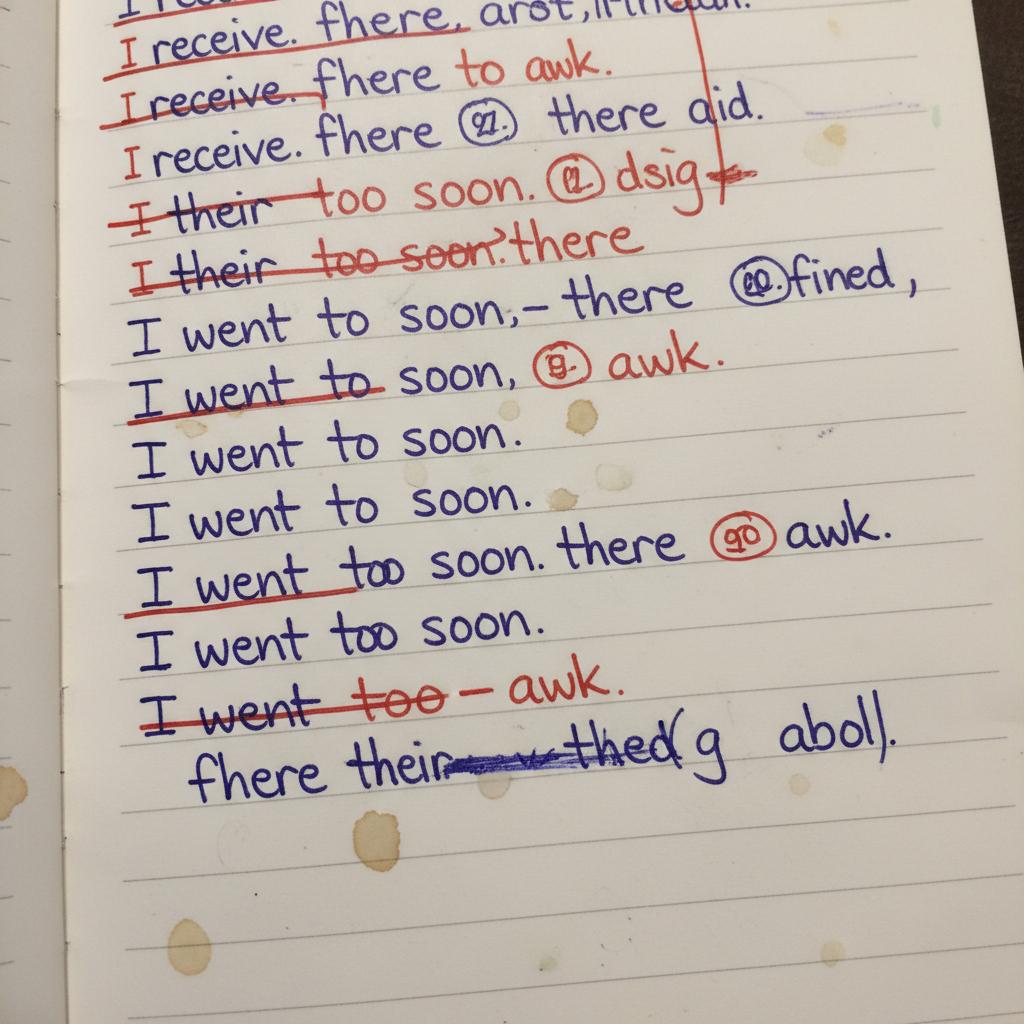 I receive. fhere, arot,
I receive. fhere to awk.
I receive. fhere 92. there aid.
I their too soon. 12. dsig
I their too soon? there
I went to soon,- there 20. fined,
I went to soon, 9. awk.
I went to soon.
I went to soon.
I went too soon. there go awk.
I went too soon.
I went too - awk.
fhere their thed (g abol).